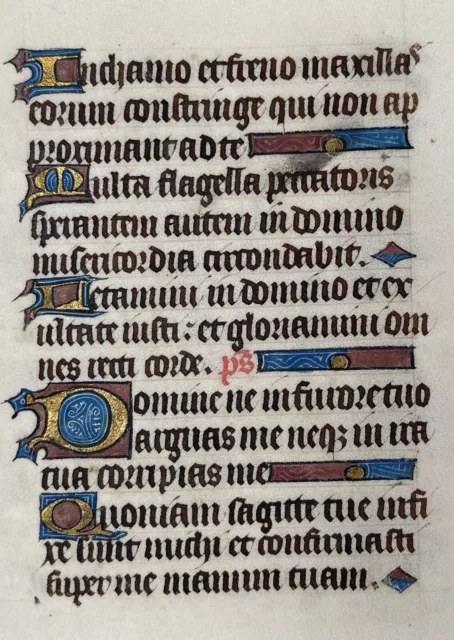 In chamo et freno maxillas
eorum constringe qui non ap
proximant ad te
Multa flagella peccatoris
sperantem autem in domino
misericordia circondabit.
Letamini in domino et ex
ultate iusti : et gloriamini om
nes recti corde. ps
Domine ne in furore tuo
arguas me neqꝫ in ira
tua corripias me
Quoniam sagitte tue infi
xe sunt michi et confirmasti
super me manum tuam.